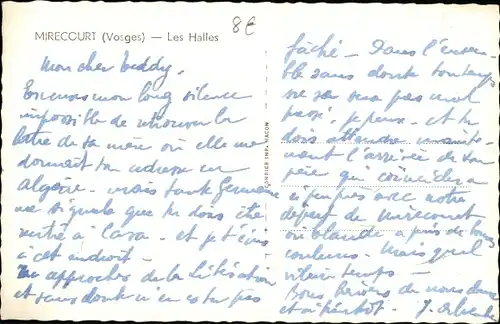 MIRECOURT (Vosges) — Les Halles
8€
Mon cher Teddy,
mon long silence
impossible de retrouver la
lettre de ta mère où elle me
donnait ton adresse en
Algérie - mais tante Germaine
me signale que tu dois être
rentré à Casa - et je t'écris
à cet endroit -
approches de la Libération
et sans doute n'en es tu pas
fâché - Dans l'ensem-
ble sans doute ton temps
se sera pas mal
passé, je pense - et tu
dois attendre mainte-
nant l'arrivée de ton
père qui coincidera
à peu près avec notre
départ de Mirecourt
où blande a peins de tous
couleurs - Mais quel
vilain temps -
Bons baisers de nous deux
et à bientôt. J.